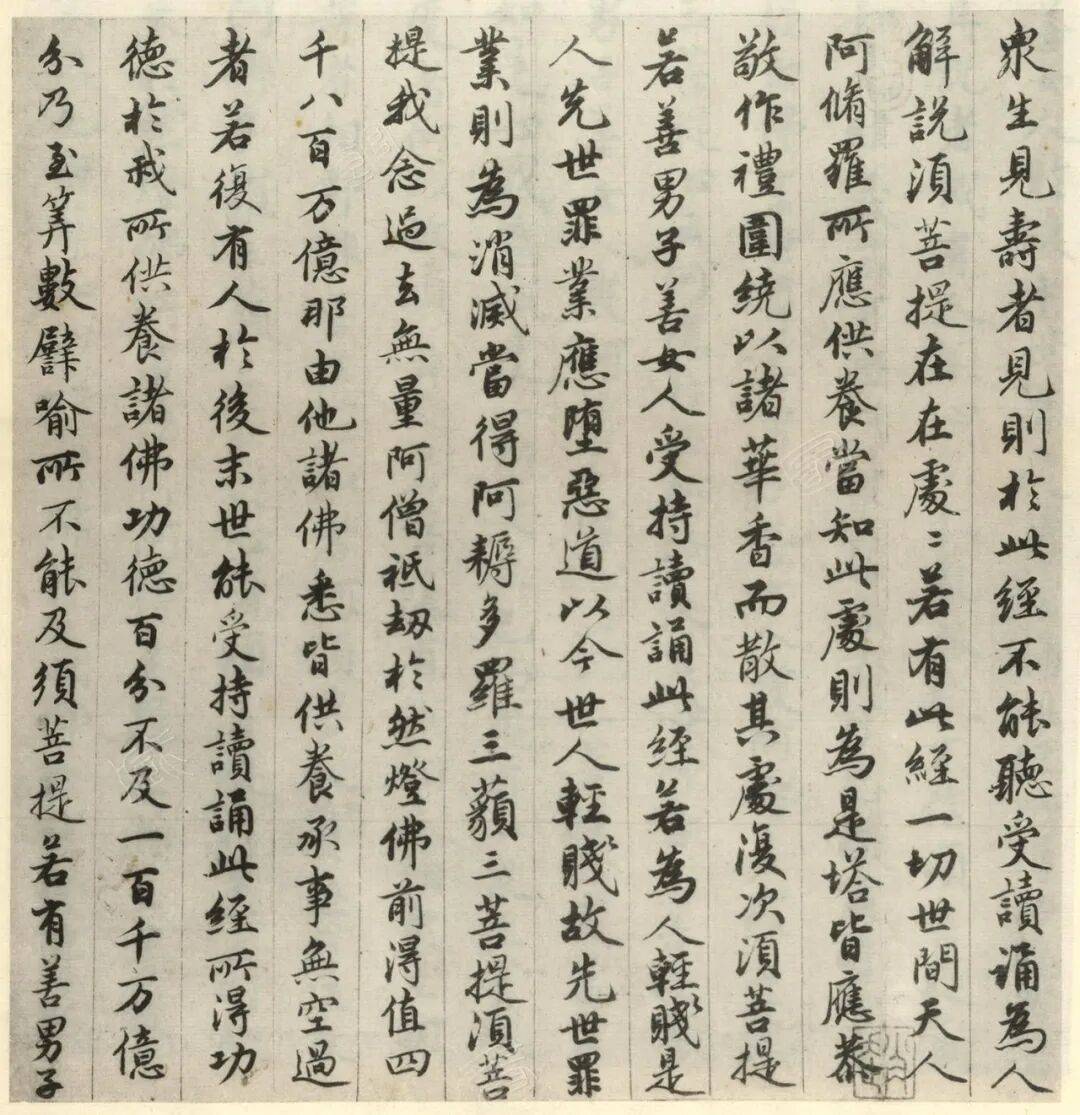 衆生見壽者見則於此經不能聽受讀誦為人
解説須菩提在在處〻若有此經一切世間天人
阿脩羅所應供養當知此處則為是塔皆應恭
敬作禮圍繞以諸華香而散其處復次須菩提
若善男子善女人受持讀誦此經若為人輕賤是
人先世罪業應墮惡道以今世人輕賤故先世罪
業則為消滅當得阿耨多羅三藐三菩提須菩
提我念過去無量阿僧祇劫於然燈佛前得值四
千八百万億那由他諸佛悉皆供養承事無空過
者若復有人於後末世能受持讀誦此經所得功
德於我所供養諸佛功德百分不及一百千万億
分乃至筭數譬喻所不能及須菩提若有善男子